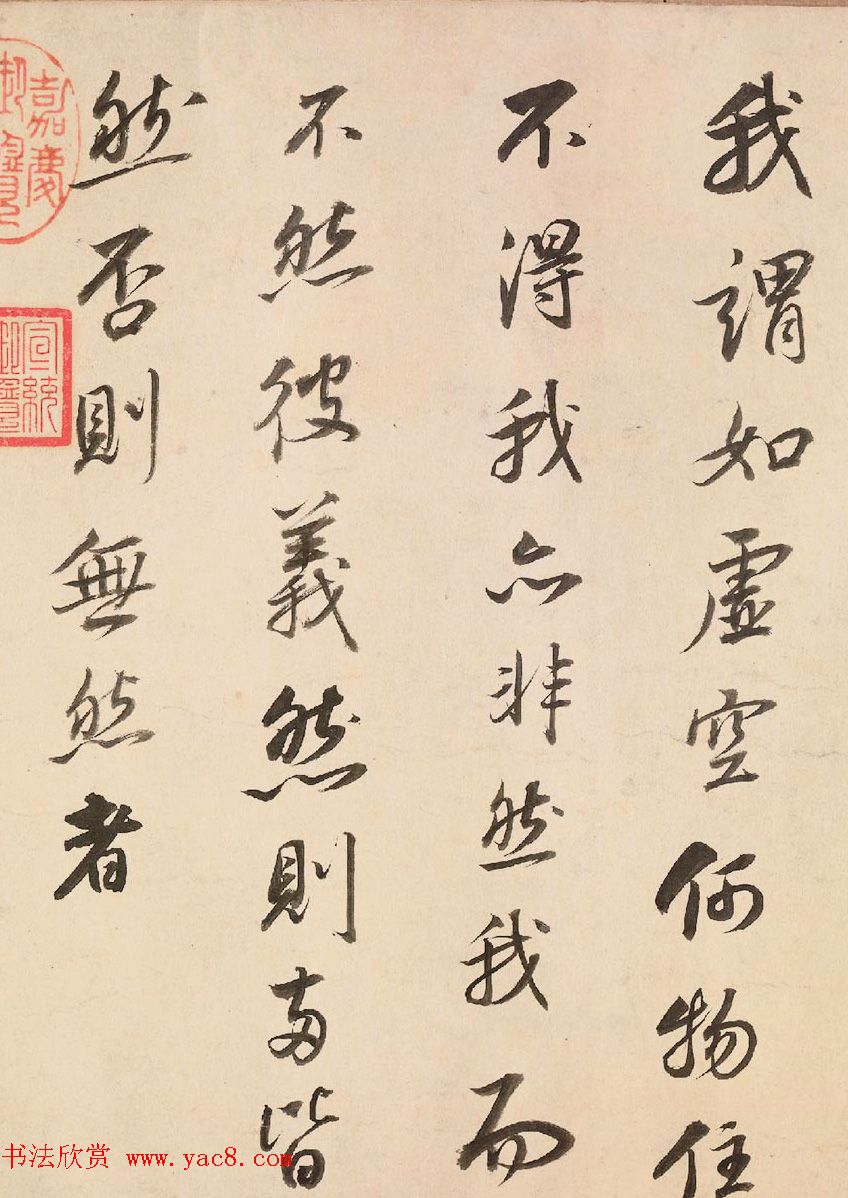 我謂如虛空何物住
不得我亦非然我而
不然彼義然則兩皆
然否則無然者
嘉慶御覽之寶
宣統御覽之寶
书法欣赏 www.yac8.com